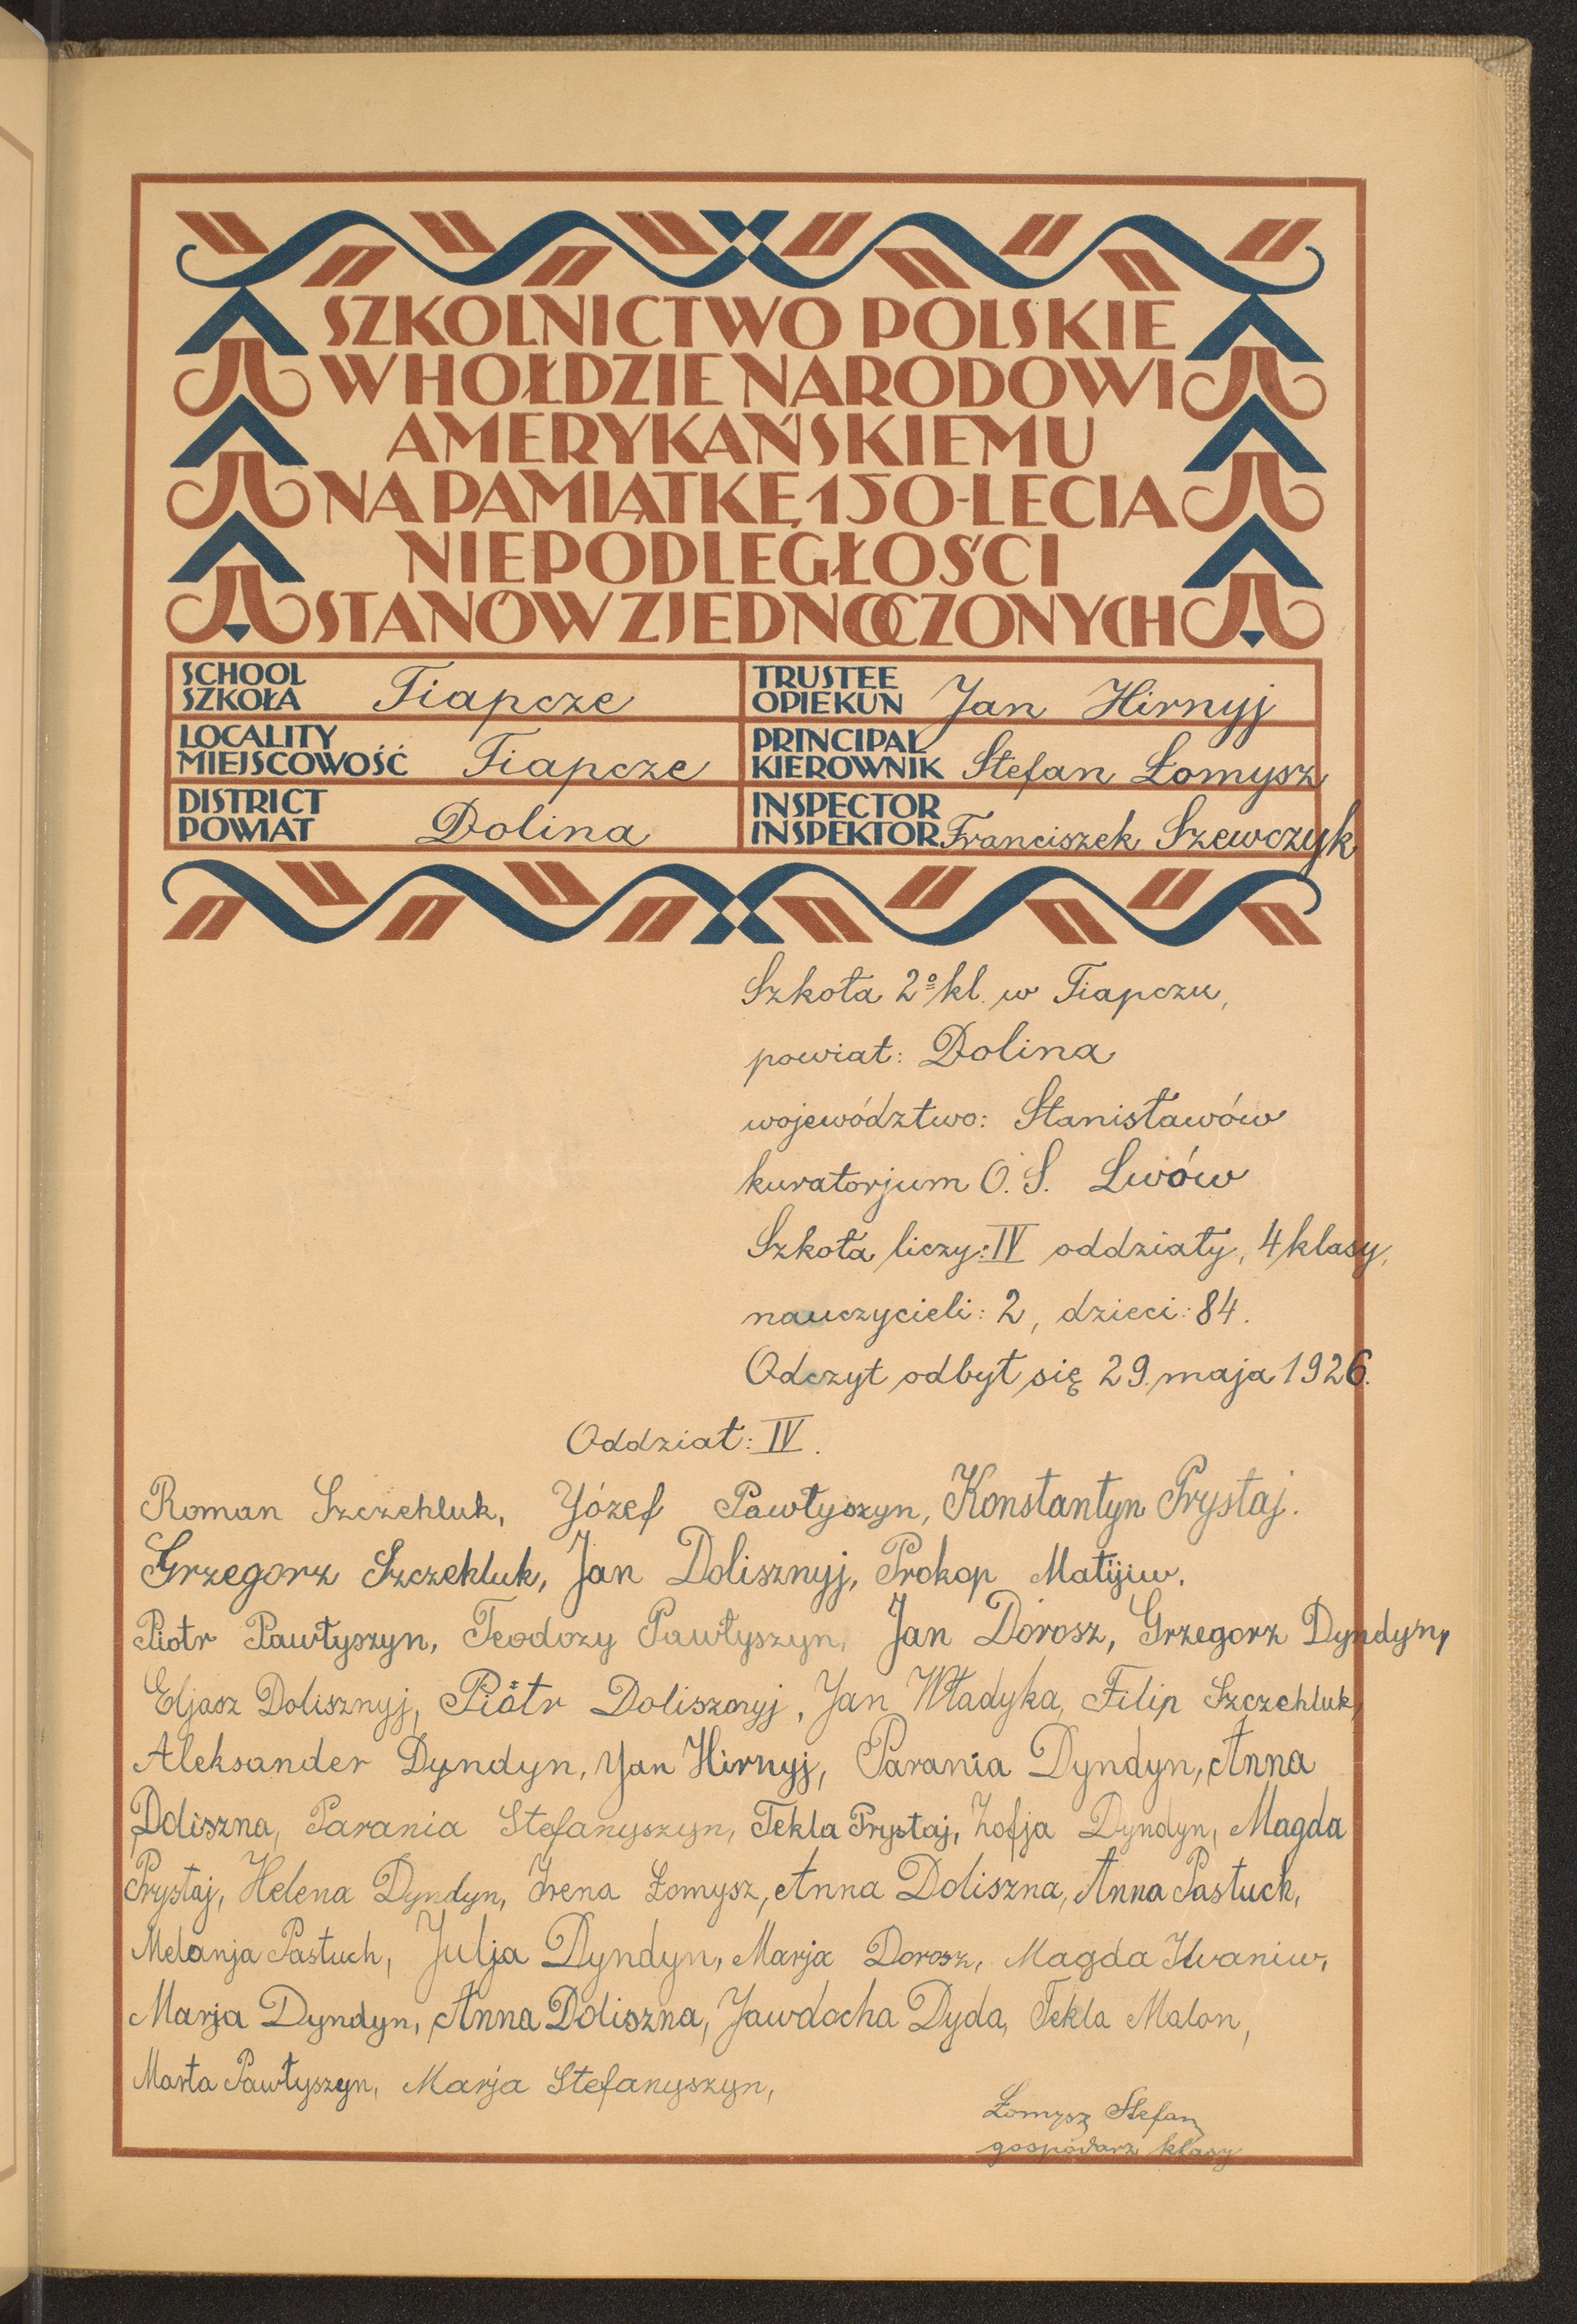 SZKOLNICTWO POLSKIE
W HOŁDZIE NARODOWI
AMERYKAŃSKIEMU
NA PAMIĄTKĘ 150-LECIA
NIEPODLEGŁOŚCI
STANÓW ZJEDNOCZONYCH
SCHOOL
SZKOŁA Tiapcze
TRUSTEE
OPIEKUN Jan Hirnyj
LOCALITY
MIEJSCOWOŚĆ Tiapcze
PRINCIPAL
KIEROWNIK Stefan Łomysz
DISTRICT
POWIAT Dolina
INSPECTOR
INSPEKTOR Franciszek Szewczyk
Szkoła 2º kl. w Tiapczu,
powiat: Dolina
województwo: Stanisławów
kuratorjum O. S. Lwów
Szkoła liczy: IV oddziały, 4 klasy,
nauczycieli: 2, dzieci: 84.
Odczyt odbył się 29. maja 1926.
Oddział: IV.
Roman Szczehluk, Józef Pawłyszyn, Konstantyn Prystaj.
Grzegorz Szczekluk, Jan Dolisznyj, Prokop Matijiw.
Piotr Pawłyszyn, Teodozy Pawłyszyn, Jan Dorosz, Grzegorz Dyndyn,
Eljasz Dolisznyj, Piotr Dolisznyj, Jan Władyka, Filip Szczehluk,
Aleksander Dyndyn, Jan Hirnyj, Parania Dyndyn, Anna
Doliszna, Parania Stefanyszyn, Tekla Prystaj, Zofja Dyndyn, Magda
Prystaj, Helena Dyndyn, Irena Łomysz, Anna Doliszna, Anna Pastuch,
Melanja Pastuch, Julja Dyndyn, Marja Dorosz, Magda Iwaniw,
Marja Dyndyn, Anna Doliszna, Jawdocha Dyda, Tekla Malon,
Marta Pawłyszyn, Marja Stefanyszyn,
Łomysz Stefan
gospodarz klasy